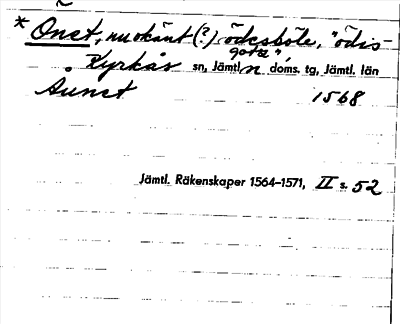 * Önet, nu okänt (?) ödesböle, "ödis-
gotz"
Kyrkås sn, Jämtl. n doms. tg, Jämtl. län
Åunet 1568
Jämtl. Räkenskaper 1564–1571, II s. 52